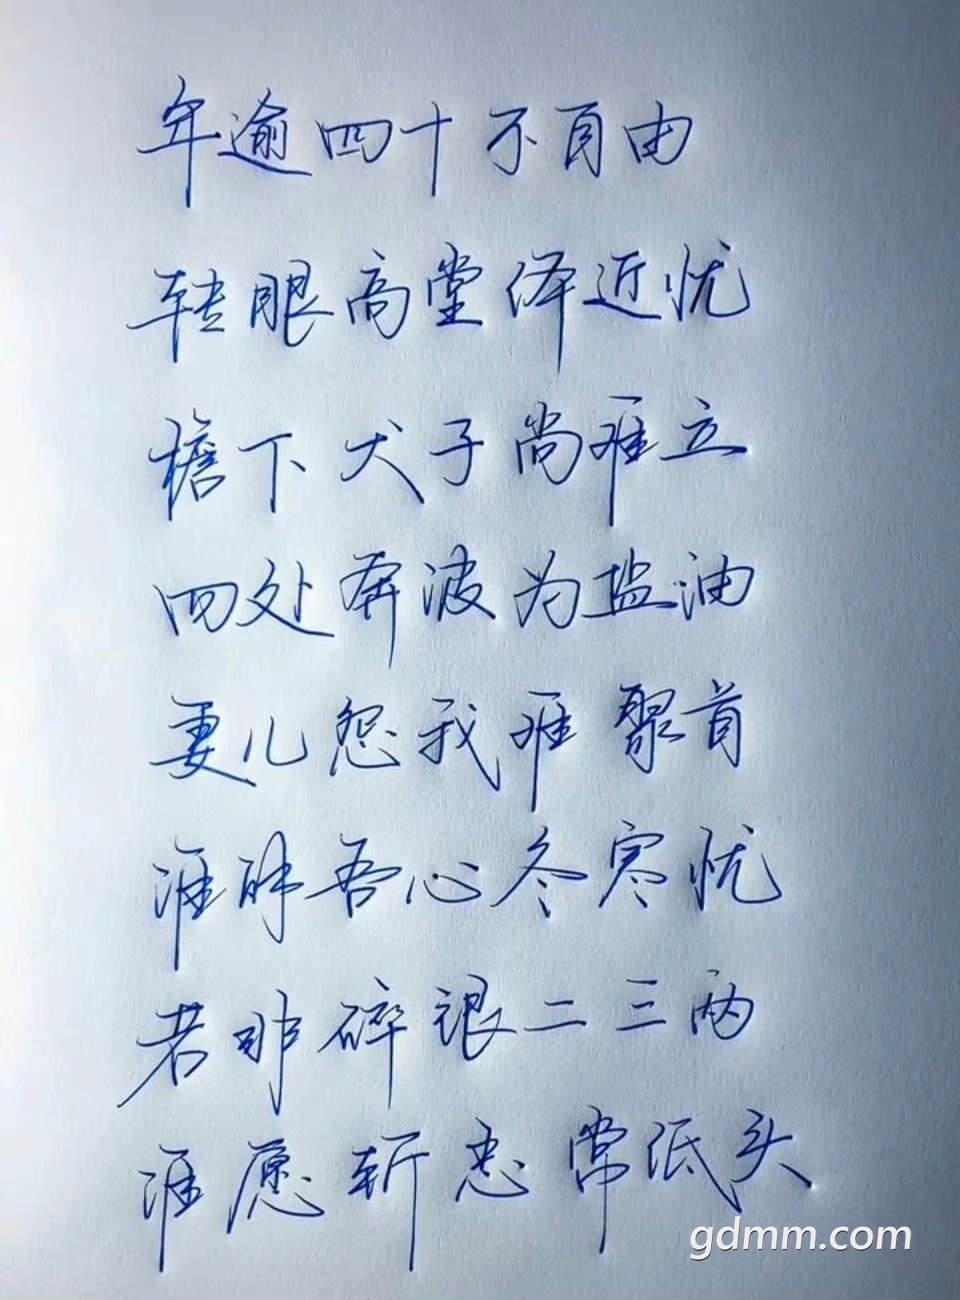 年逾四十不自由
转眼高堂伴近忧
檐下犬子尚难立
四处奔波为盐油
妻儿怨我难聚首
谁解吾心冬寒忧
若非碎银二三两
谁愿折志常低头
gdmm.com